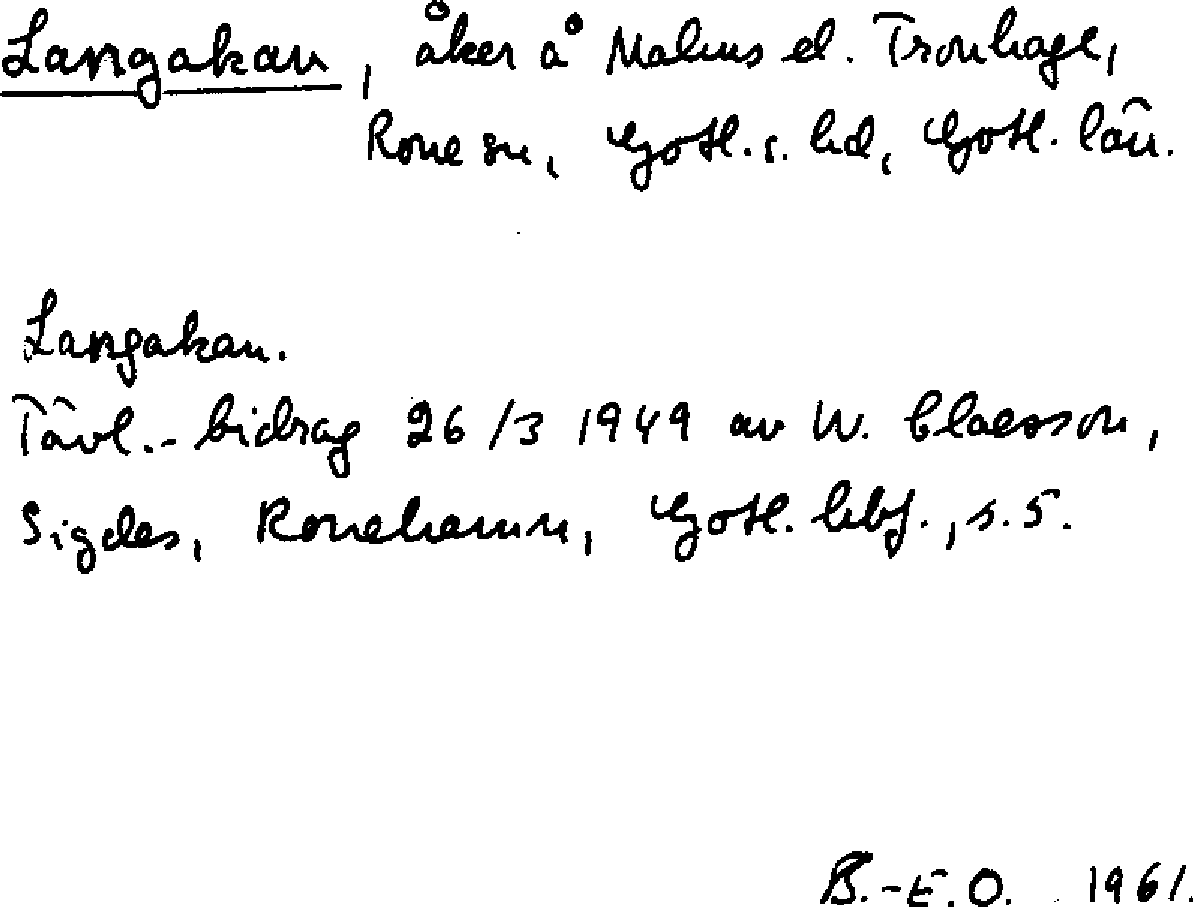 Langakan, åker å Malms el. Tronhage,
Rone sn, Gotl. s. hd, Gotl. län.
Langakan.
Tävl.-bidrag 26/3 1949 av W. Claesson,
Sigdes, Ronehamn, Gotl. hbf., s. 5.
B.-E.O. 1961.